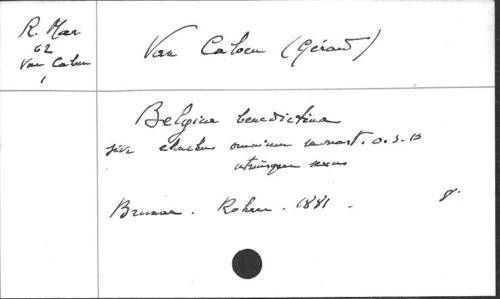 R. Mar
62
Van Caloen
1
Van Caloen (Gérard)
Belgica benedictina
sive elenchus omnium monast. O. S. B
utriusque sexus
Brunae. Rohrer. 1881. 8°